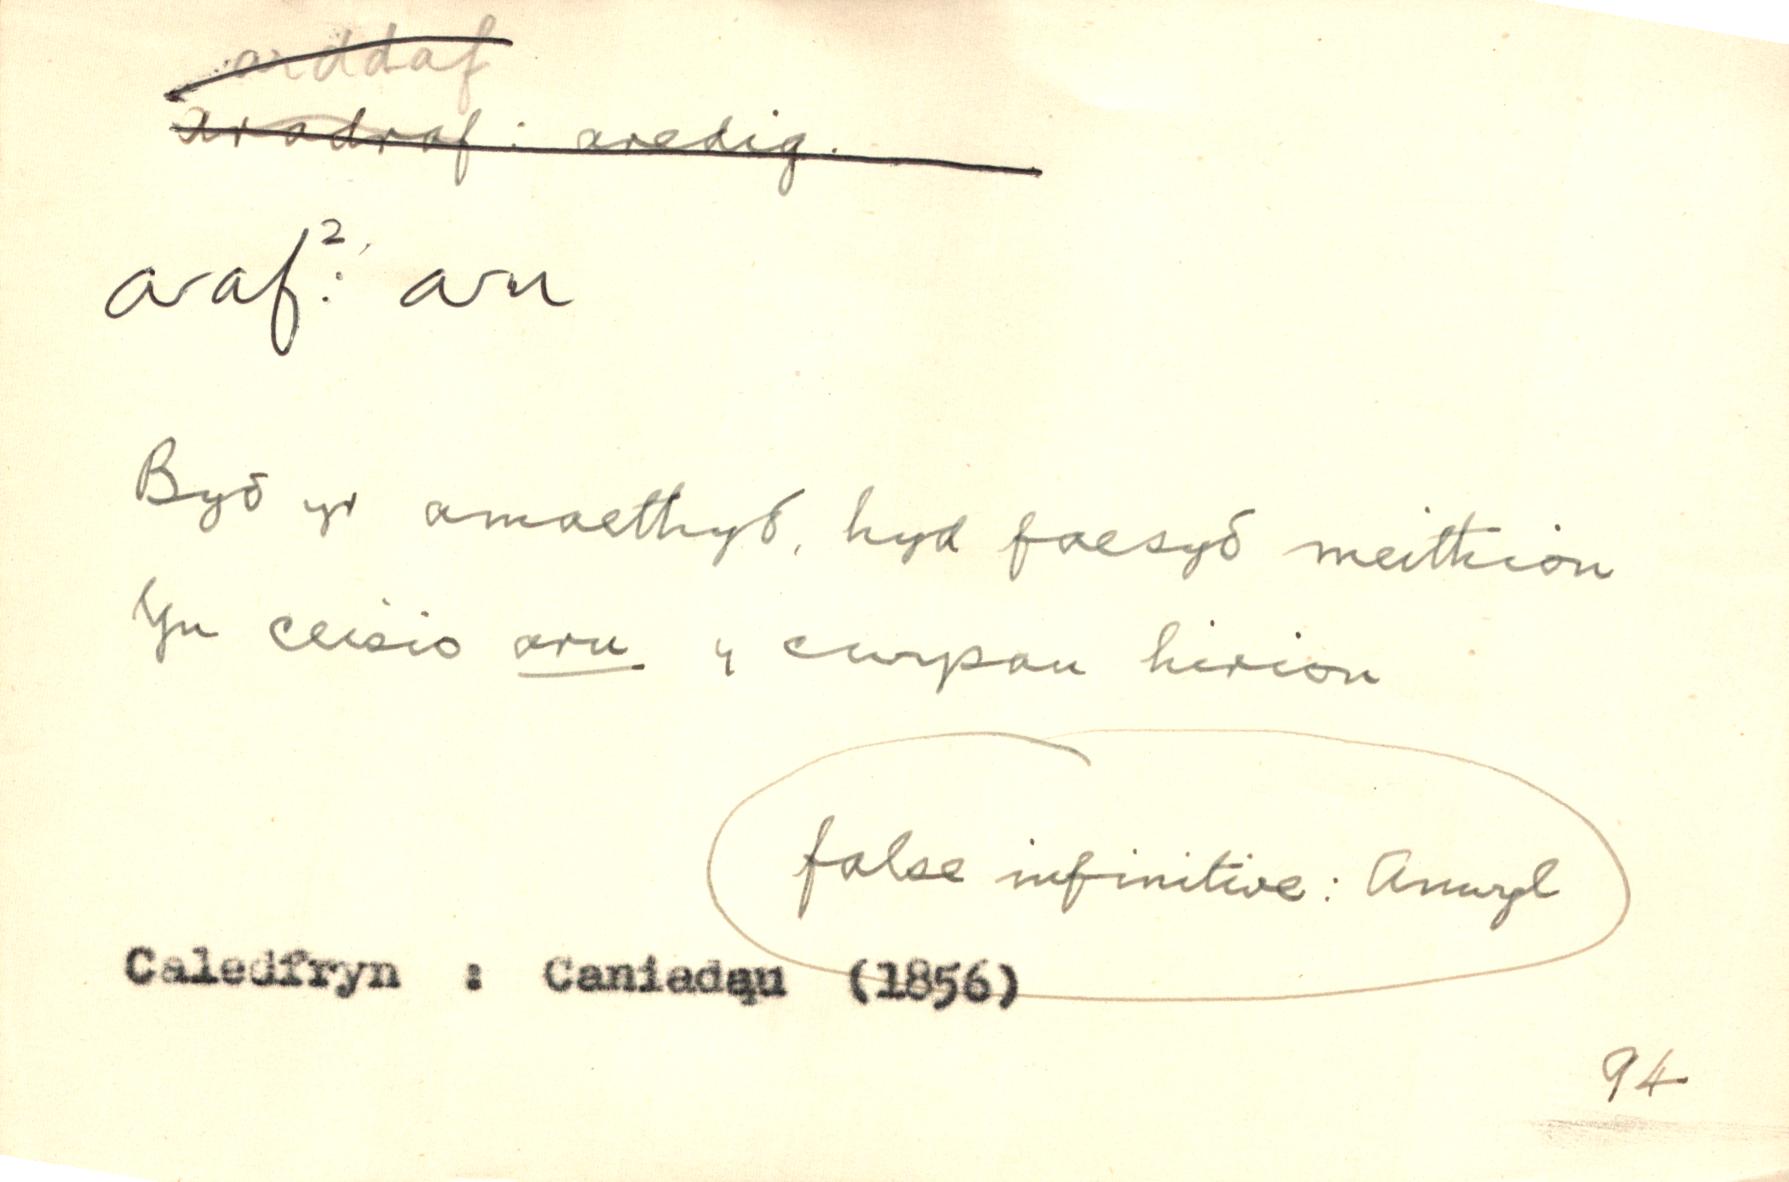 arddaf
aradraf : aredig.
araf²: aru
Byδ yr amaethyδ, hyd faesyδ meithion
Yn ceisio aru y cwysau hirion
false infinitive : Anwyl
Caledfryn : Caniadau (1856)
94